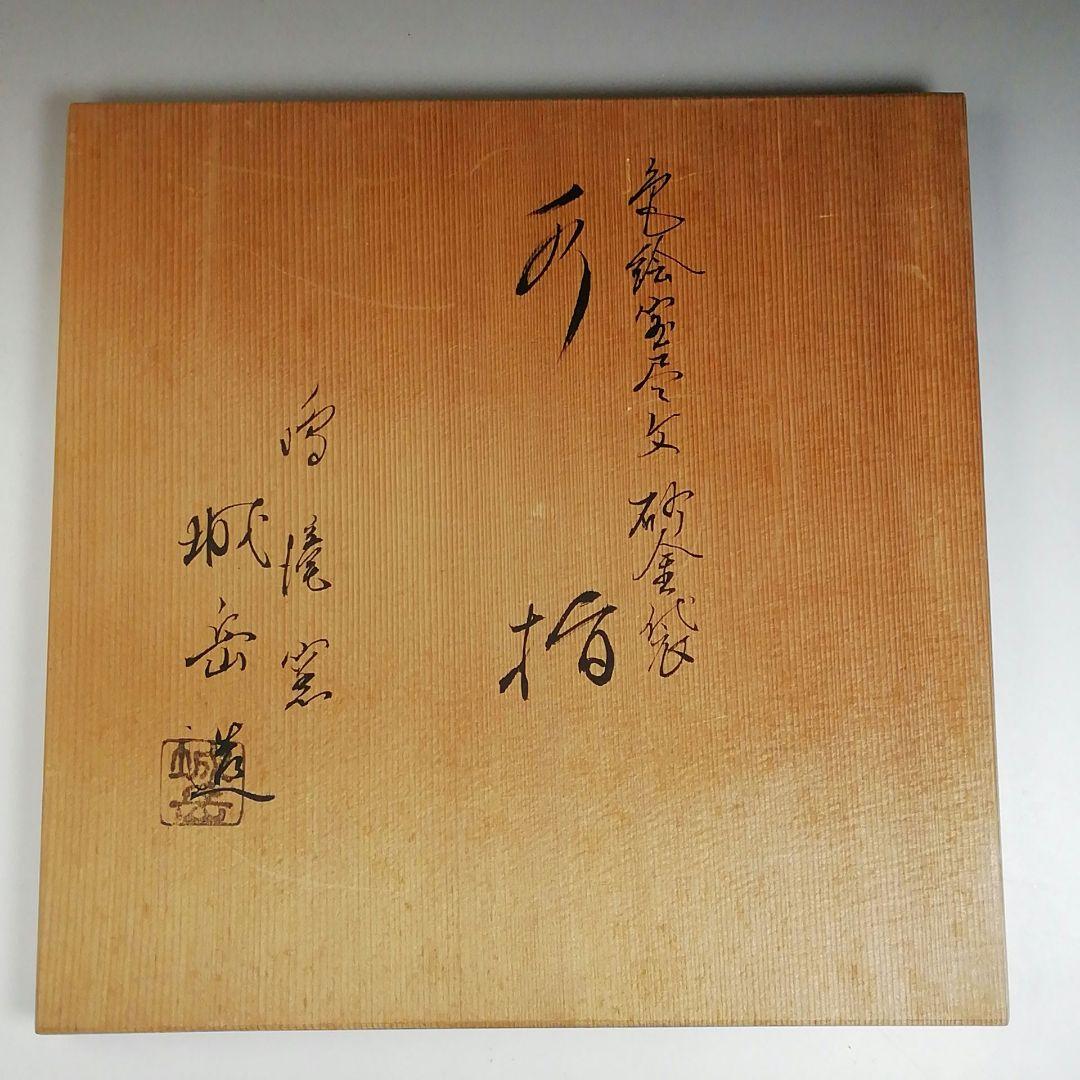 色絵宝尽文 砂金袋
水指
鳴滝窯
城岳造
城岳